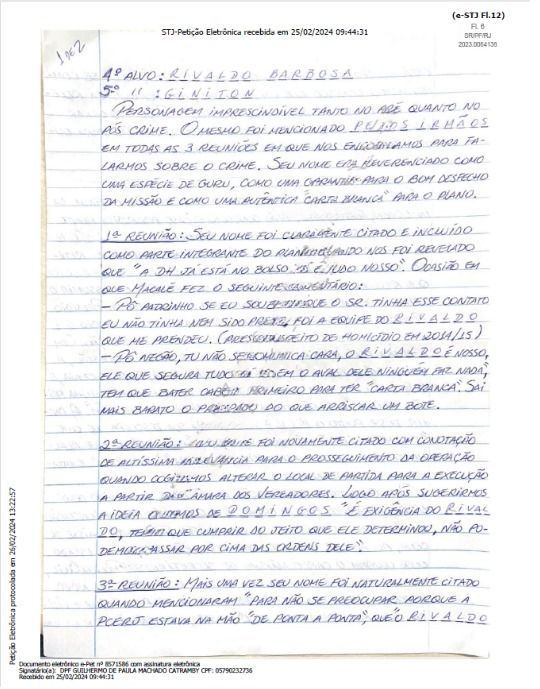 (e-STJ Fl.12)
Fl. 6
SR/PF/RJ
2023.0064135
STJ-Petição Eletrônica recebida em 25/02/2024 09:44:31
1 de 2
4º ALVO: RIVALDO BARBOSA
5º " : GINITON
PERSONAGEM IMPRESCINDÍVEL TANTO NO PRÉ QUANTO NO
PÓS CRIME. O MESMO FOI MENCIONADO PELOS IRMÃOS
EM TODAS AS 3 REUNIÕES EM QUE NOS ENCONTRAMOS PARA FA-
LARMOS SOBRE O CRIME. SEU NOME ERA REVERENCIADO COMO
UMA ESPÉCIE DE GURU, COMO UMA GARANTIA PARA O BOM DESPECHO
DA MISSÃO E COMO UMA AUTÊNTICA "CARTA BRANCA" PARA O PLANO.
1ª REUNIÃO: SEU NOME FOI CLARAMENTE CITADO E INCLUÍDO
COMO PARTE INTEGRANTE DO QUANDO NOS FOI REVELADO
QUE "A DH JÁ ESTÁ NO BOLSO É TUDO NOSSO". OCASIÃO EM
QUE MACALÉ FEZ O SEGUINTE COMENTÁRIO:
- PÔ PADRINHO SE EU O SR. TINHA ESSE CONTATO
EU NÃO TINHA NEM SIDO PRESO, FOI A EQUIPE DO RIVALDO
QUE ME PRENDEU. DE HOMICÍDIO EM 2014/15)
- PÔ NEGÃO, TU NÃO SE COMUNICA CARA, O RIVALDO É NOSSO,
ELE QUE SEGURA TUDO SEM O AVAL DELE NINGUÉM FAZ NADA,
TEM QUE BATER CABEÇA PRIMEIRO PARA TER "CARTA BRANCA". SAI
MAIS BARATO O DO QUE ARRISCAR UM BOTE.
2ª REUNIÃO: SEU NOME FOI NOVAMENTE CITADO COM CONOTAÇÃO
DE ALTÍSSIMA RELEVÂNCIA PARA O PROSSEGUIMENTO DA OPERAÇÃO
QUANDO COGITAMOS ALTERAR O LOCAL DE PARTIDA PARA A EXECUÇÃO
A PARTIR DA CÂMARA DOS VEREADORES. LOGO APÓS SUGERIRMOS
A IDEIA OUVIMOS DE DOMINGOS "É EXIGÊNCIA DO RIVAL
DO, TEMOS QUE CUMPRIR DO JEITO QUE ELE DETERMINOU, NÃO PO-
DEMOS PASSAR POR CIMA DAS ORDENS DELE".
3ª REUNIÃO: MAIS UMA VEZ SEU NOME FOI NATURALMENTE CITADO
QUANDO MENCIONARAM "PARA NÃO SE PREOCUPAR PORQUE A
PCERJ ESTAVA NA MÃO "DE PONTA A PONTA", QUE O RIVALDO
Petição Eletrônica protocolada em 26/02/2024 13:22:57
Documento eletrônico e-Pet nº 8571586 com assinatura eletrônica
Signatário(a): DPF GUILHERMO DE PAULA MACHADO CATRAMBY CPF: 05790232736
Recebido em 25/02/2024 09:44:31